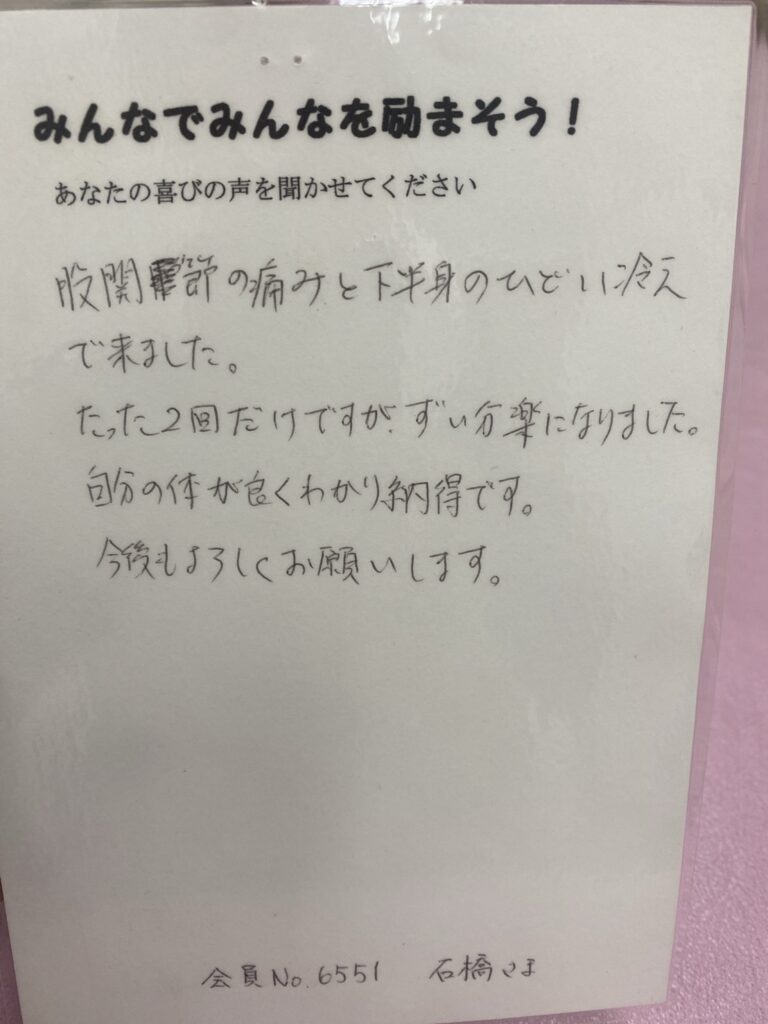 みんなでみんなを励まそう!
あなたの喜びの声を聞かせてください
股関節の痛みと下半身のひどい冷え
で来ました。
たった2回だけですが、ずい分楽になりました。
自分の体が良くわかり納得です。
今後もよろしくお願いします。
会員No.6551 石橋さま